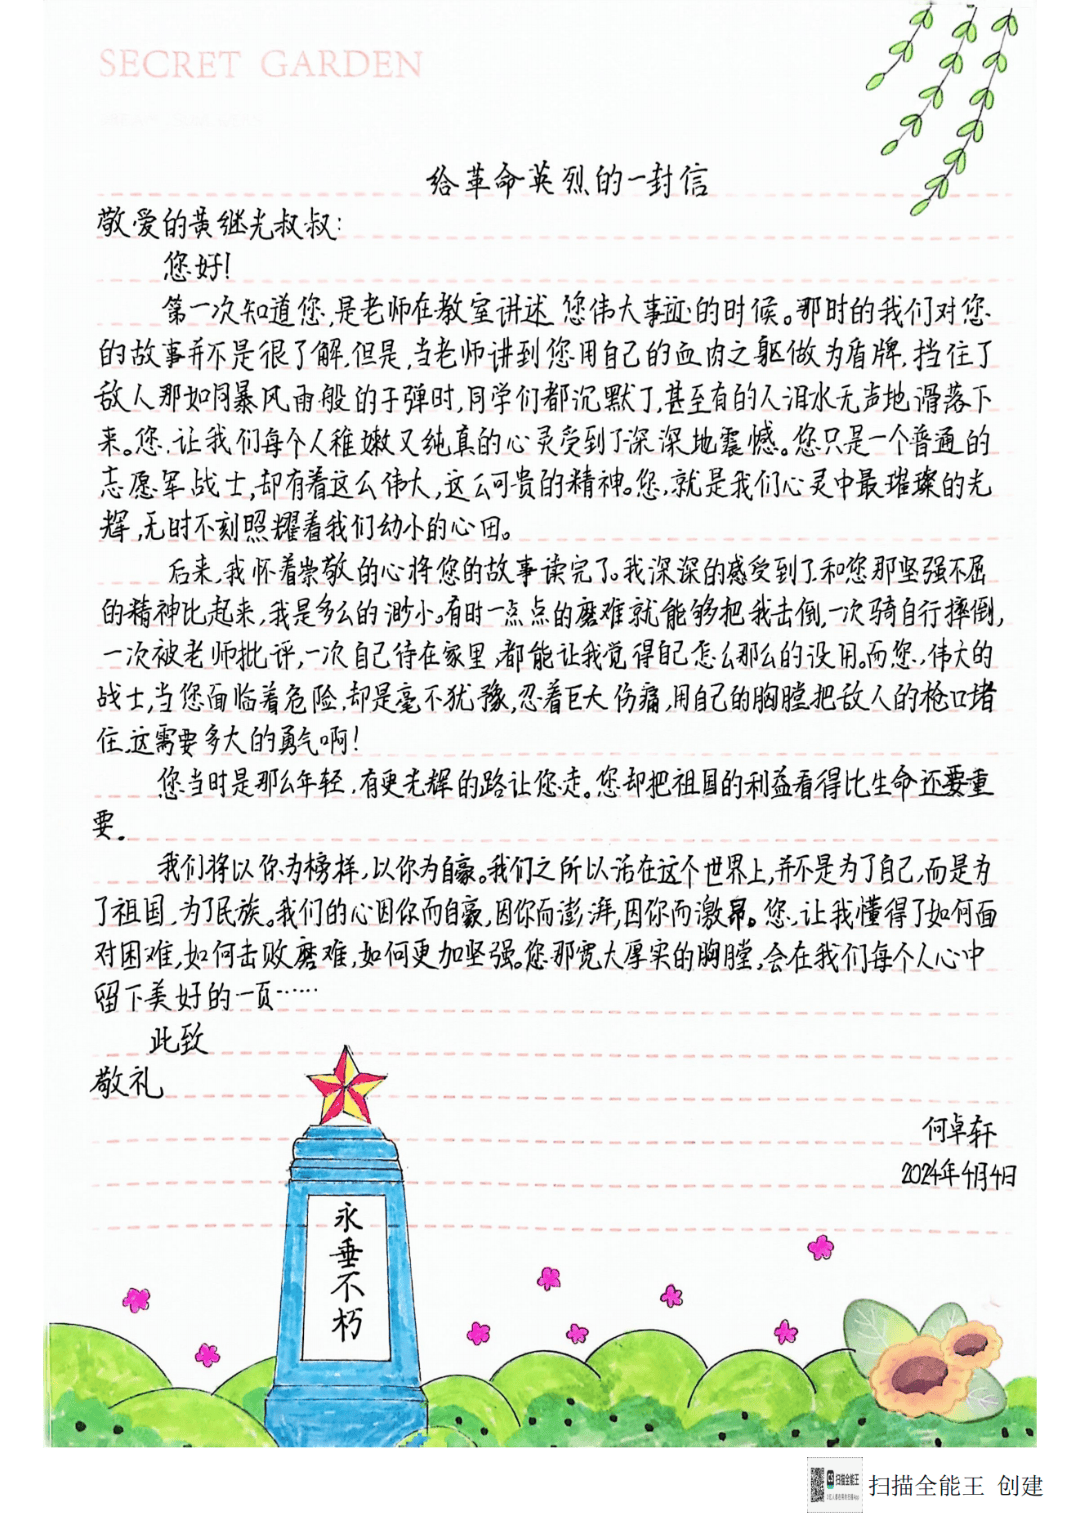 SECRET GARDEN
给革命英烈的一封信
敬爱的黄继光叔叔:
您好!
第一次知道您,是老师在教室讲述您伟大事迹的时候。那时的我们对您
的故事并不是很了解,但是,当老师讲到您用自己的血肉之躯做为盾牌,挡住了
敌人那如同暴风雨般的子弹时,同学们都沉默了,甚至有的人泪水无声地滑落下
来。您,让我们每个人稚嫩又纯真的心灵受到了深深地震憾。您只是一个普通的
志愿军战士,却有着这么伟大,这么可贵的精神。您,就是我们心灵中最璀璨的光
辉,无时不刻照耀着我们幼小的心田。
后来,我怀着崇敬的心将您的故事读完了。我深深的感受到了,和您那坚强不屈
的精神比起来,我是多么的渺小。有时一点点的磨难就能够把我击倒,一次骑自行摔倒,
一次被老师批评,一次自己待在家里,都能让我觉得自己怎么那么的没用。而您,伟大的
战士,当您面临着危险,却是毫不犹豫,忍着巨大伤痛,用自己的胸膛把敌人的枪口堵
住,这需要多大的勇气啊!
您当时是那么年轻,有更光辉的路让您走。您却把祖国的利益看得比生命还要重
要。
我们将以你为榜样,以你为自豪。我们之所以活在这个世界上,并不是为了自己,而是为
了祖国,为了民族。我们的心因你而自豪,因你而澎湃,因你而激昂。您,让我懂得了如何面
对困难,如何击败磨难,如何更加坚强。您那宽大厚实的胸膛,会在我们每个人心中
留下美好的一页……
此致
敬礼
何卓轩
2024年4月4日
永
垂
不
朽
扫描全能王
扫描全能王 创建